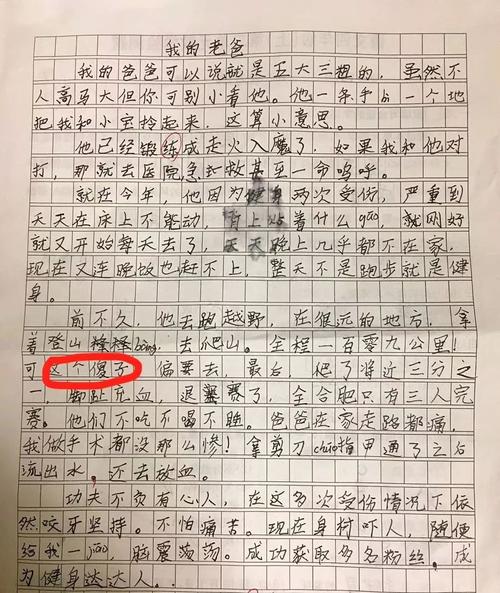 我的老爸
我的爸爸可以说就是五大三粗的，虽然不
人高马大但你可别小看他。他一条手bì一个地
把我和小宝拎起来，这算小意思。
他已经锻练成走火入魔了，如果我和他对
打，那就去医院急救甚至一命呜呼。
就在今年，他因为健身两次受伤，严重到
天天在床上不能动，背上 着什么gāo，就刚好
就又开始每天去了，天天晚上几乎都不在家，
现在又连晚饭也赶不上，整天不是跑步就是健
身。
前不久，他去跑越野，在很远的地方，拿
着登山 bàng，去爬山。全程一百零九公里！
可这个傻子偏要去，最后，爬了将近三分之
一，脚趾充血，退赛了，全合肥只有三人完
赛。他们不吃不喝不睡。爸爸在家走路都痛，
我做手术都没那么惨！拿剪刀chuō指甲通了之后
流出水，还去放血。
功夫不负有心人，在这多次受伤情况下依
然咬牙坚持。不怕痛苦。现在身材吓人，随便
给我一 ，脑震荡荡。成功获取多名粉丝。成
为健身达达人。